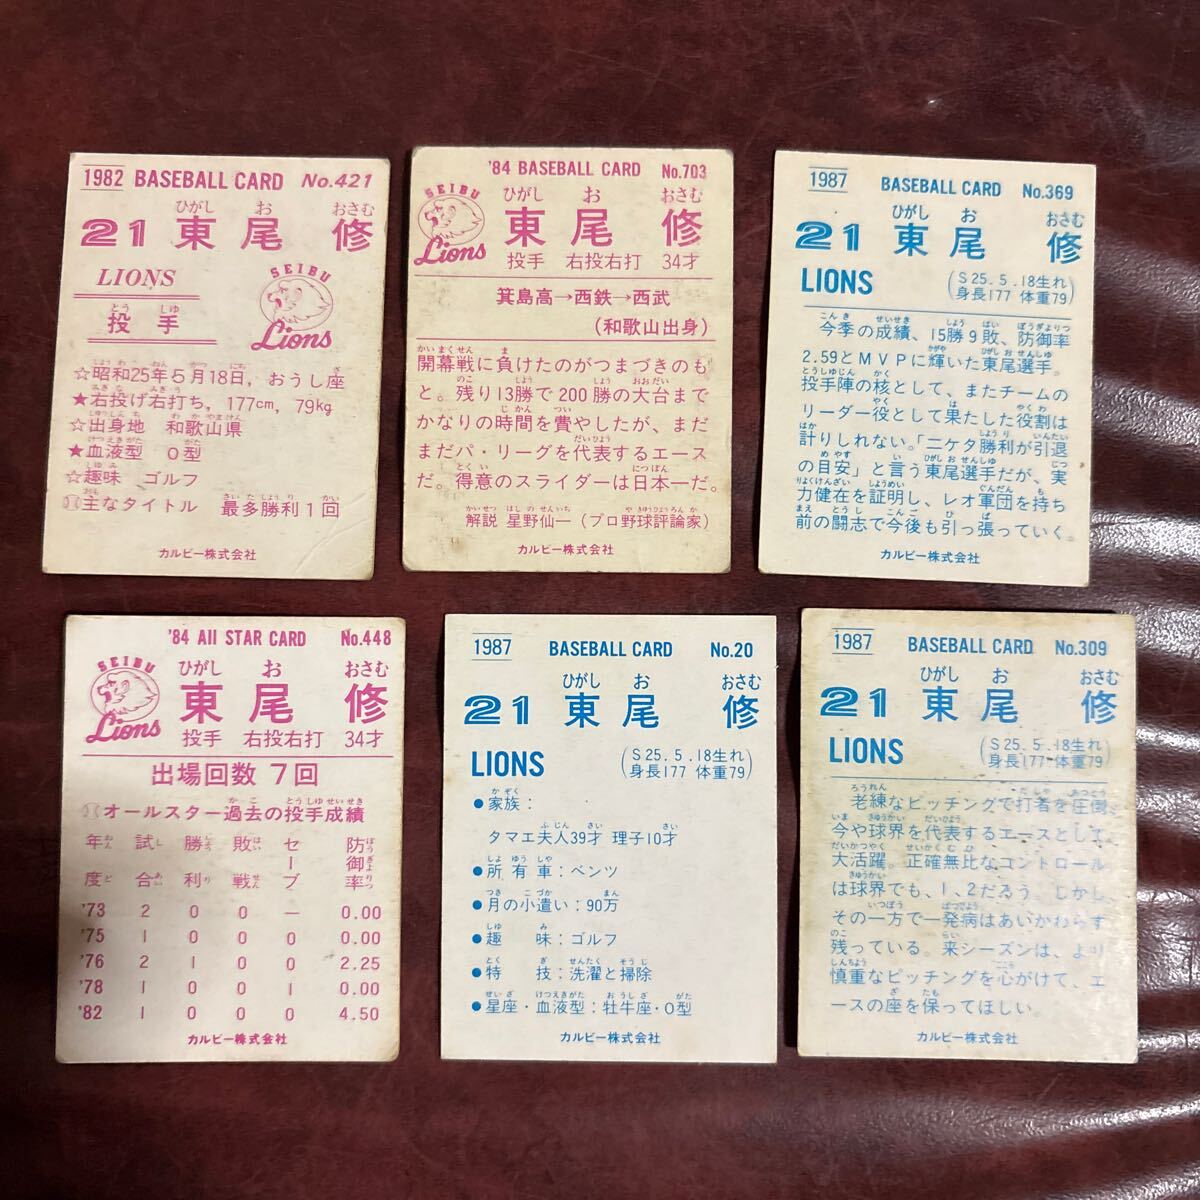 1982 BASEBALL CARD No.421
ひがし お おさむ
21 東尾 修
LIONS
SEIBU
Lions
とう しゅ
投手
☆昭和25年5月18日, おうし座
★右投げ右打ち, 177cm, 79kg
☆出身地 和歌山県
★血液型 O型
☆趣味 ゴルフ
主なタイトル 最多勝利1回
カルビー株式会社
'84 BASEBALL CARD No.703
SEIBU
Lions
ひがし お おさむ
東尾 修
投手 右投右打 34才
箕島高→西鉄→西武
(和歌山出身)
開幕戦に負けたのがつまづきのも
と。残り13勝で200勝の大台まで
かなりの時間を費やしたが、まだ
まだパ・リーグを代表するエース
だ。得意のスライダーは日本一だ。
解説 星野仙一(プロ野球評論家)
カルビー株式会社
1987 BASEBALL CARD No.369
ひがし お おさむ
21 東尾 修
LIONS
(S25.5.18生れ
身長177 体重79)
今季の成績、15勝9敗、防御率
2.59とMVPに輝いた東尾選手。
投手陣の核として、またチームの
リーダー役として果たした役割は
計りしれない。「二ケタ勝利が引退
の目安」と言う東尾選手だが、実
力健在を証明し、レオ軍団を持ち
前の闘志で今後も引っ張っていく。
カルビー株式会社
'84 All STAR CARD No.448
SEIBU
Lions
ひがし お おさむ
東尾 修
投手 右投右打 34才
出場回数 7回
オールスター過去の投手成績
年度 試合 勝利 敗戦 セーブ 防御率
'73 2 0 0 － 0.00
'75 1 0 0 0 0.00
'76 2 1 0 0 2.25
'78 1 0 0 1 0.00
'82 1 0 0 0 4.50
カルビー株式会社
1987 BASEBALL CARD No.20
ひがし お おさむ
21 東尾 修
LIONS
(S25.5.18生れ
身長177 体重79)
●家族:
タマエ夫人39才 理子10才
●所有車:ベンツ
●月の小遣い:90万
●趣 味:ゴルフ
●特 技:洗濯と掃除
●星座・血液型:牡牛座・O型
カルビー株式会社
1987 BASEBALL CARD No.309
ひがし お おさむ
21 東尾 修
LIONS
(S25.5.18生れ
身長177 体重79)
老練なピッチングで打者を圧倒、
今や球界を代表するエースとして、
大活躍。正確無比なコントロール
は球界でも、1、2だろう。しかし、
その一方で一発病はあいかわらず
残っている。来シーズンは、より
慎重なピッチングを心がけて、エ
ースの座を保ってほしい。
カルビー株式会社